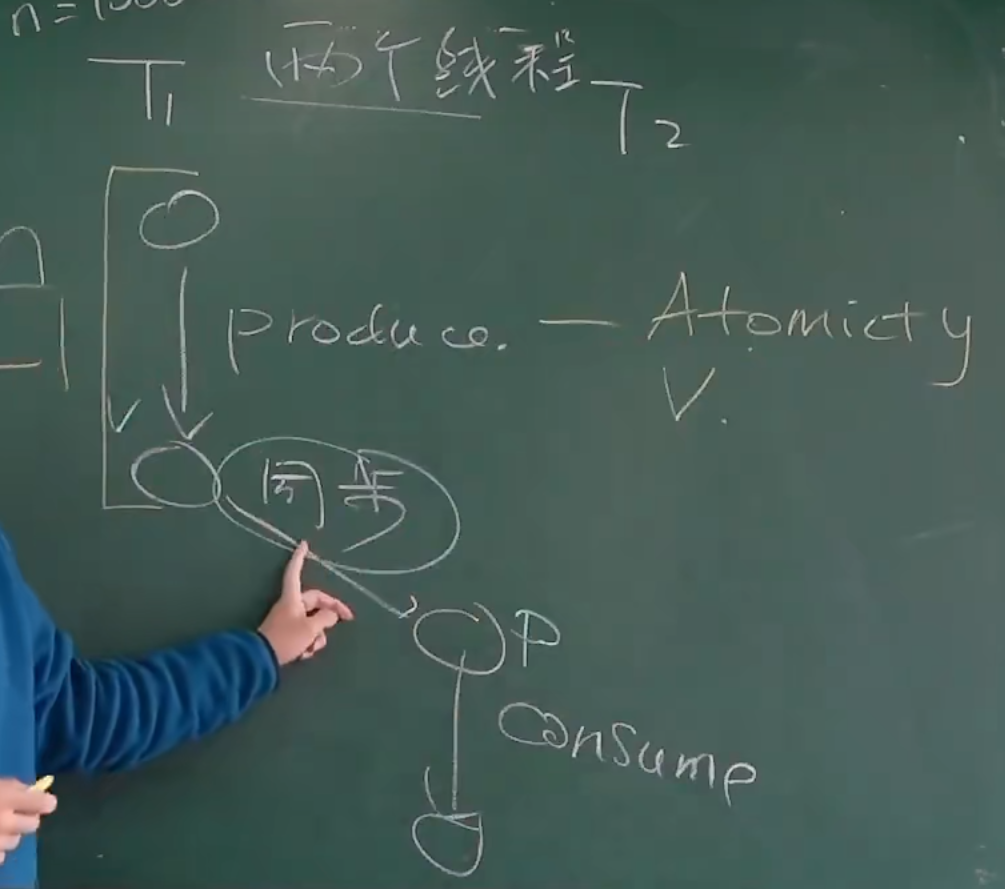 n = 1000
T1 两个线程 T2
produce. — Atomicty
V V.
同步
P
Consump